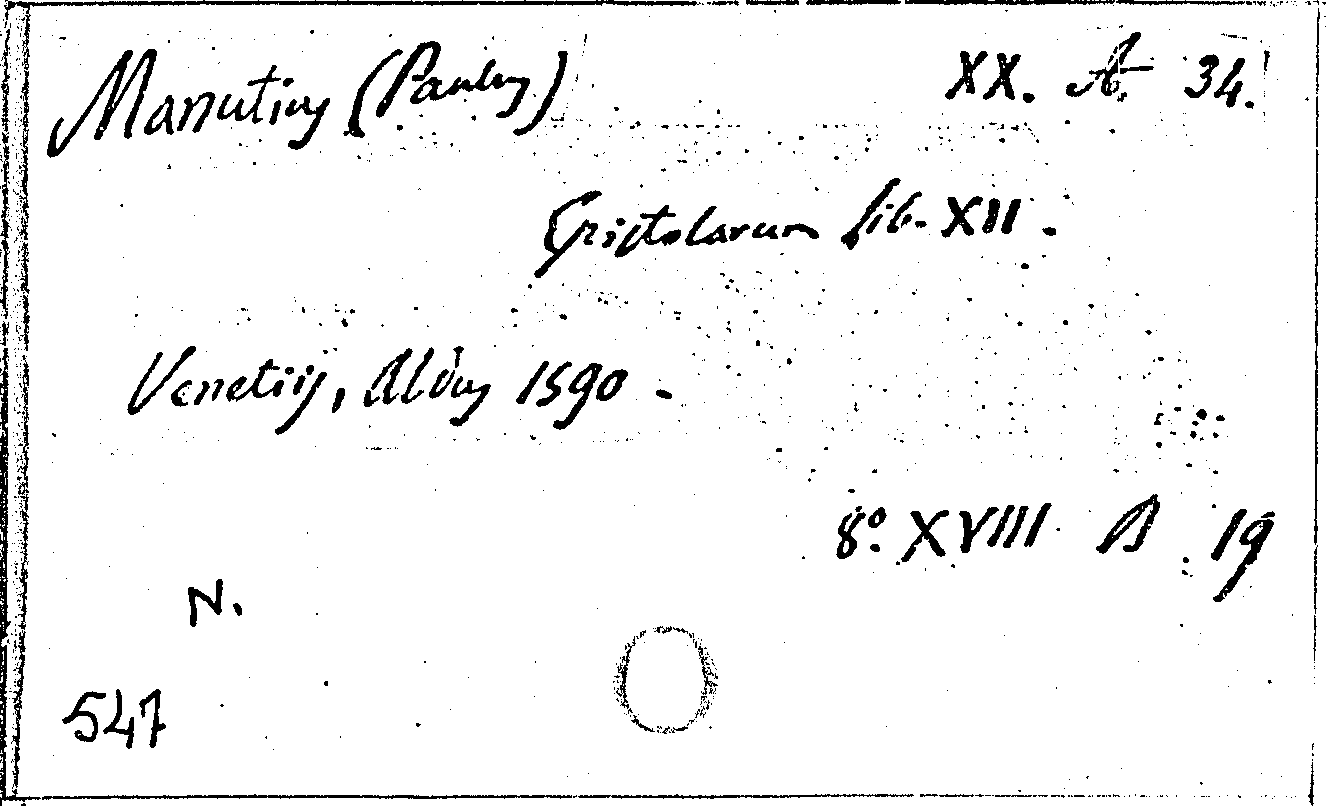 Manutius (Paulus) XX. A. 34.
Epistolarum lib. XII.
Venetiis, Aldus 1590.
8º. XVIII B 19
N.
547